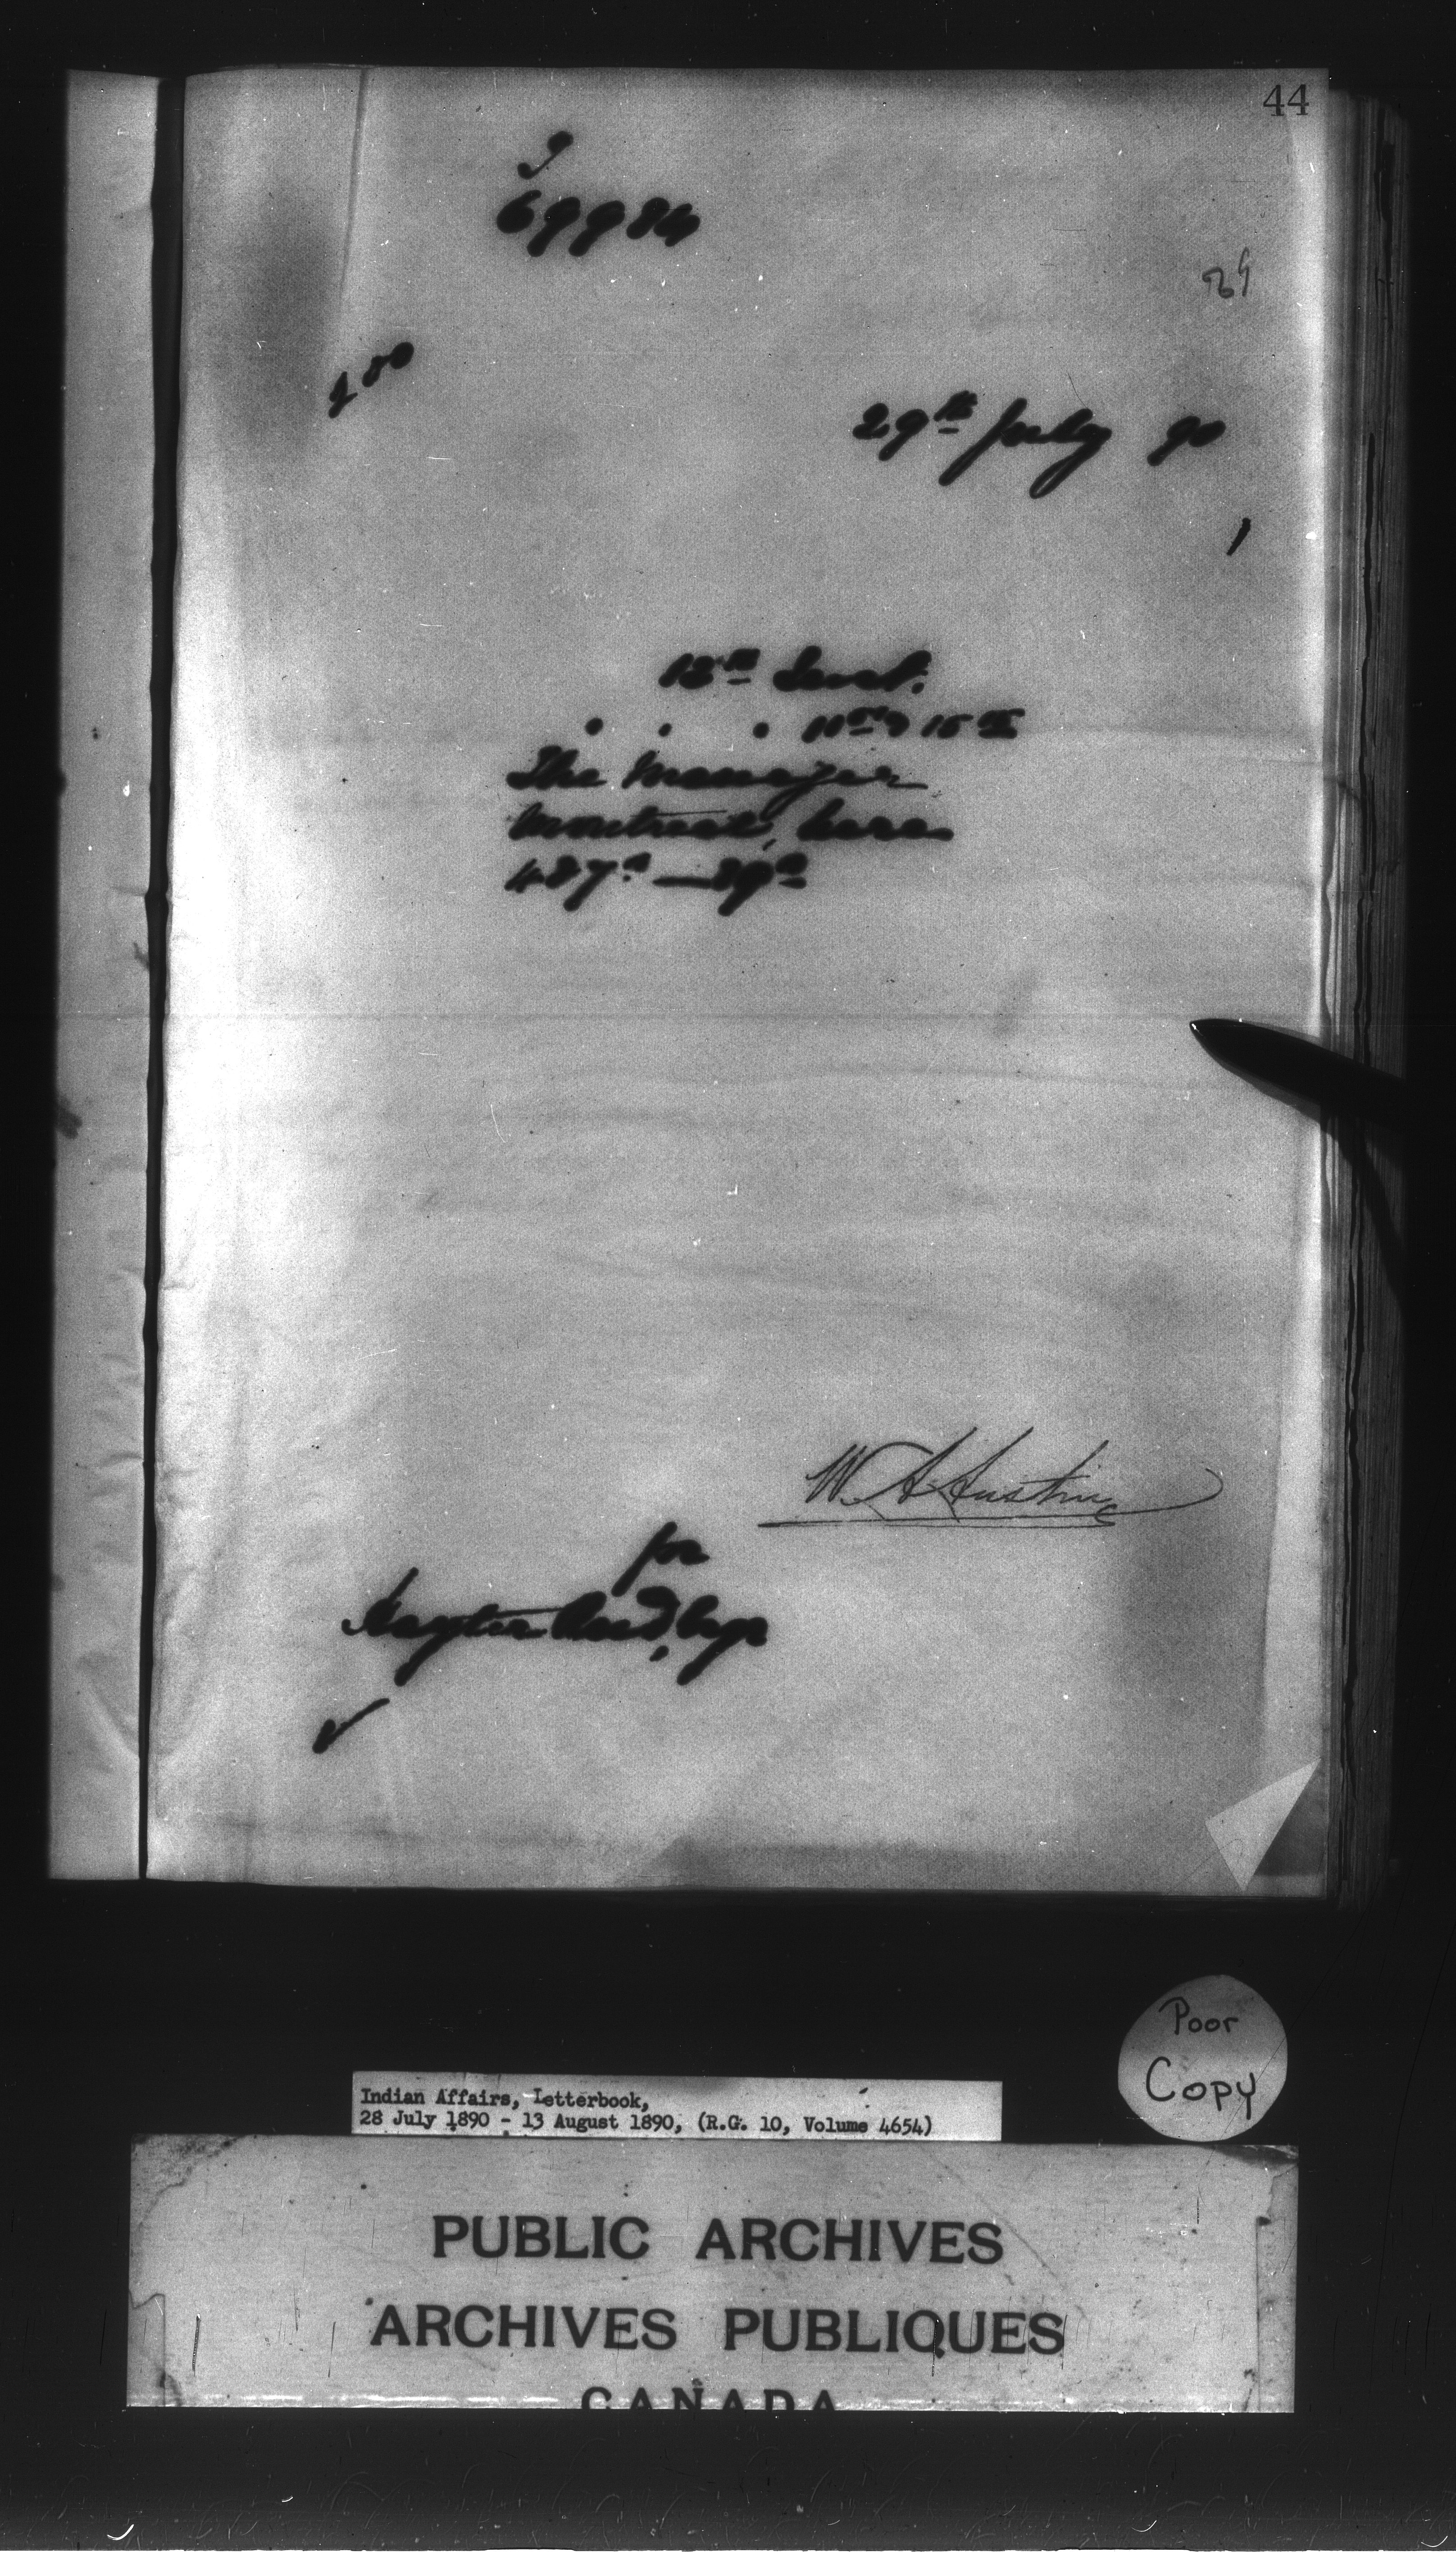 44
69984
29
29th July 90
13th Inst.
11th & 15th
The Manager
Montreal, here
487.
W. A. Austin
for
Hayter Reed, Esqr
Poor
Copy
Indian Affairs, Letterbook,
28 July 1890 - 13 August 1890, (R.G. 10, Volume 4654)
PUBLIC ARCHIVES
ARCHIVES PUBLIQUES
CANADA